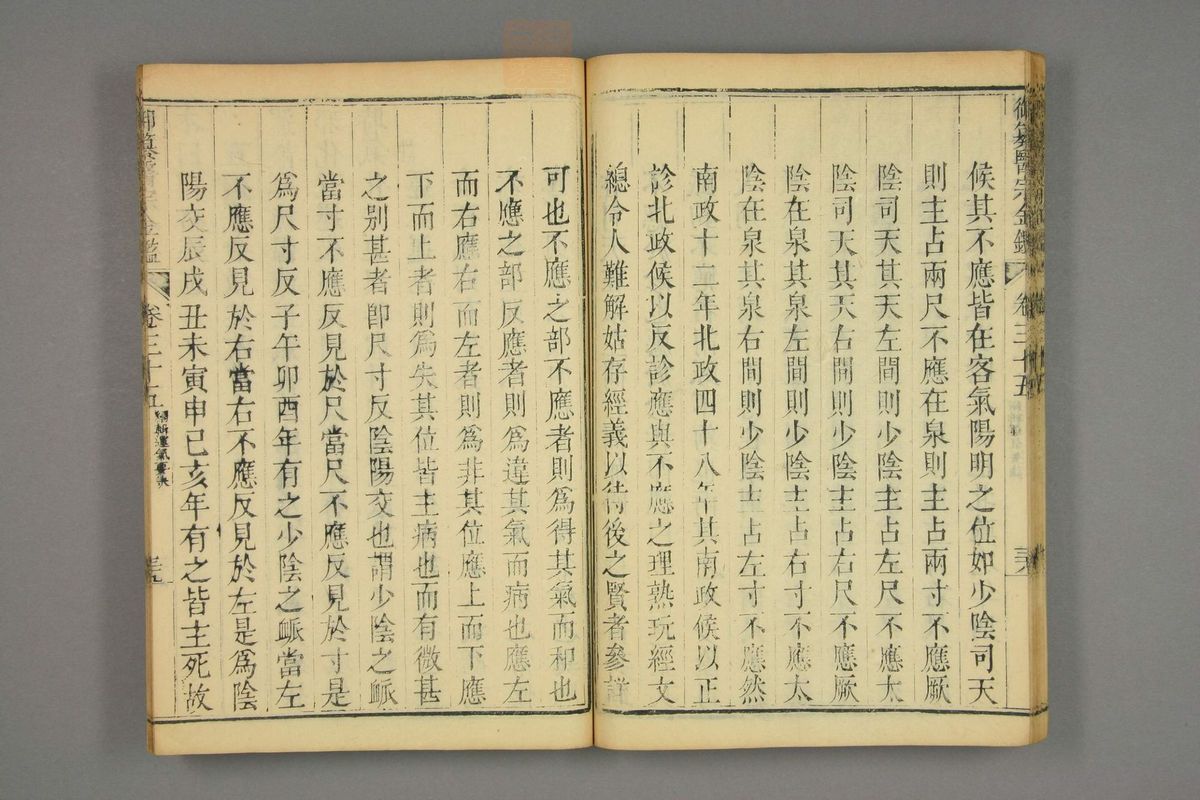 御纂醫宗金鑑 卷三十五
候其不應皆在客氣陽明之位如少陰司天
則主占兩尺不應在泉則主占兩寸不應厥
陰司天其天左間則少陰主占左尺不應太
陰司天其天右間則少陰主占右尺不應厥
陰在泉其泉左間則少陰主占右寸不應太
陰在泉其泉右間則少陰主占左寸不應然
南政十二年北政四十八年其南政候以正
診北政候以反診應與不應之理熟玩經文
總令人難解姑存經義以待後之賢者參詳
可也不應之部不應者則為得其氣而和也
不應之部反應者則為違其氣而病也應左
而右應右而左者則為非其位應上而下應
下而上者則為失其位皆主病也而有微甚
之别甚者即尺寸反陰陽交也謂少陰之脈
當寸不應反見於尺當尺不應反見於寸是
為尺寸反子午卯酉年有之少陰之脈當左
不應反見於右當右不應反見於左是為陰
陽交辰戌丑未寅申巳亥年有之皆主死故
御纂醫宗金鑑 卷三十五 編輯運氣要訣